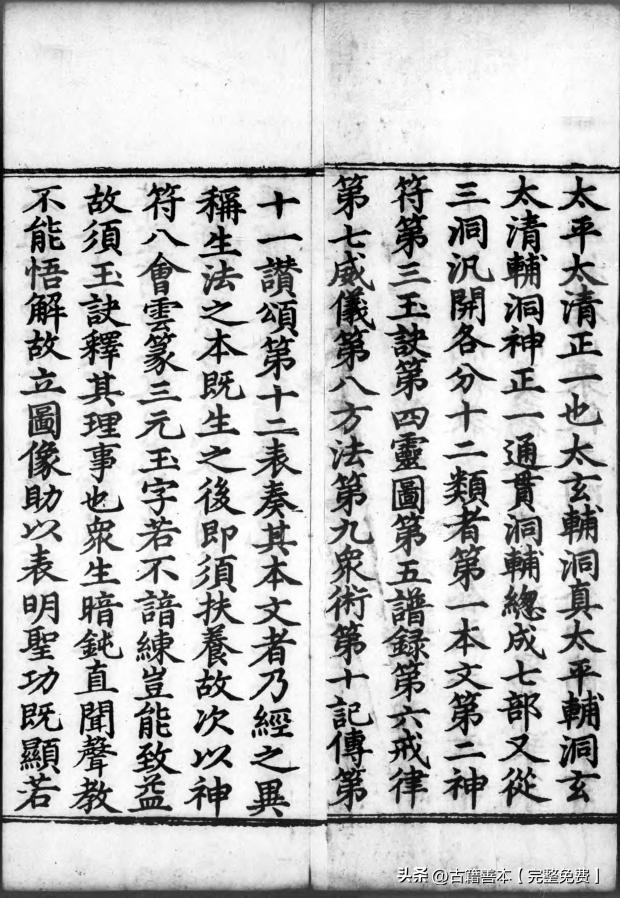 太平太清正一也太玄輔洞真太平輔洞玄
太清輔洞神正一通貫洞輔總成七部又從
三洞汎開各分十二類者第一本文第二神
符第三玉訣第四靈圖第五譜録第六戒律
第七威儀第八方法第九衆術第十記傳第
十一讃頌第十二表奏其本文者乃經之異
稱生法之本既生之後即須扶養故次以神
符八會雲篆三元玉字若不諳練豈能致益
故須玉訣釋其理事也衆生暗鈍直聞聲教
不能悟解故立圖像助以表明聖功既顯若
头条 @古籍善本【完整免费】